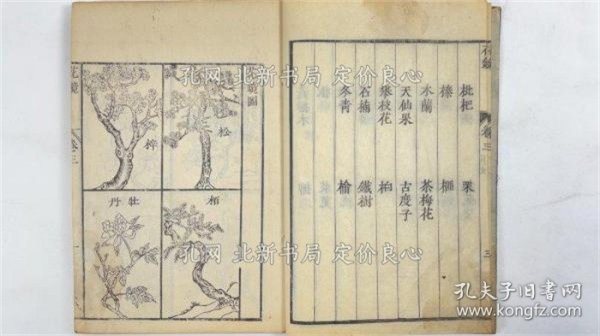 花鏡
卷三
三
枇杷
栗
榛
榧
木蘭
茶梅花
天仙果
古度子
攀枝花
柏
石楠
鐵樹
冬青
榆
松
梓
栢
牡丹
花鏡
卷三
孔网 北新书局 定价良心
孔网 北新书局 定价良心
孔夫子旧书网
www.kongfz.com